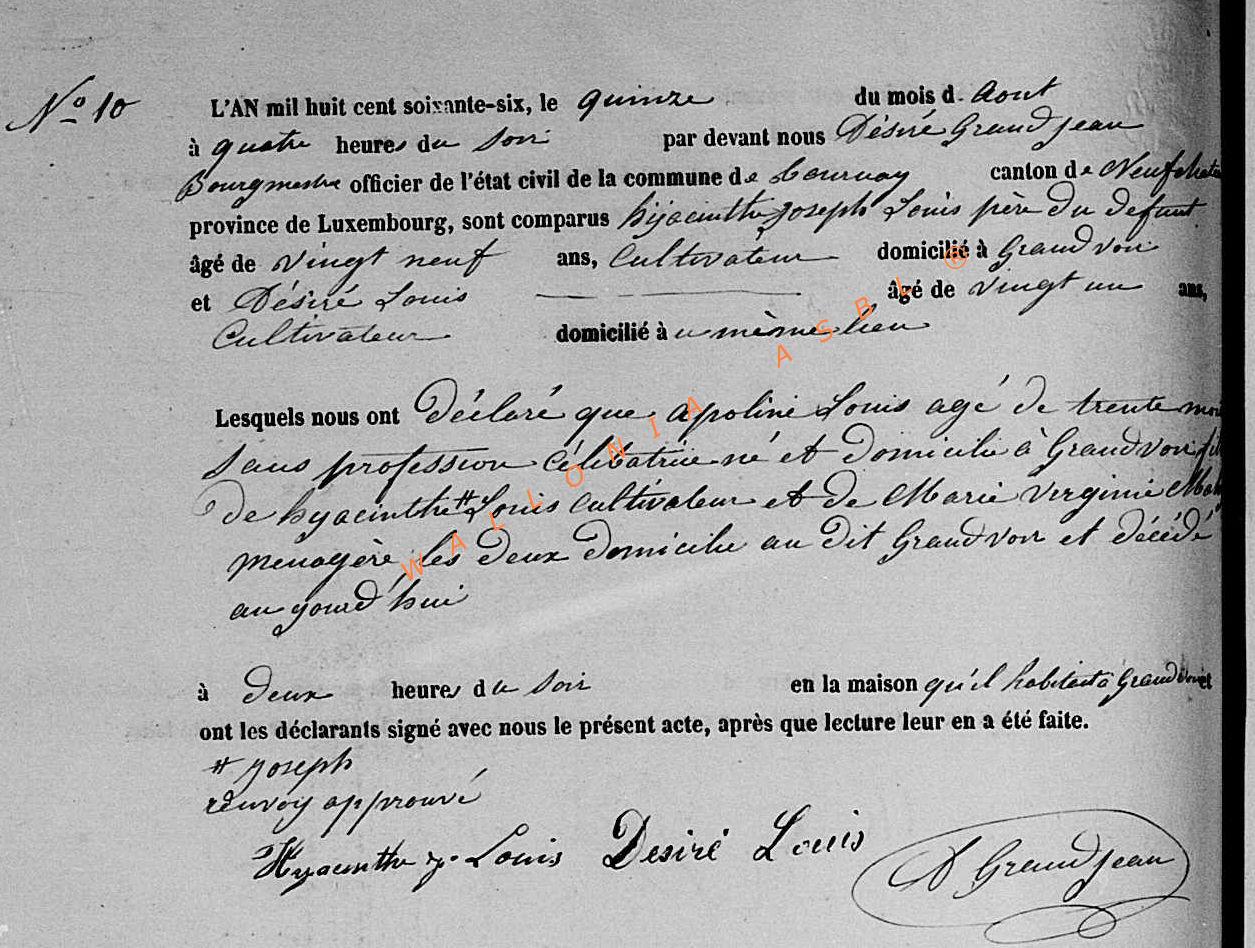 N° 10
L'AN mil huit cent soixante-six, le quinze du mois d. Aout
à quatre heures du Soir par devant nous Désiré Grandjean
Bourgmestre officier de l'état civil de la commune de Tournay canton de Neufchateau
province de Luxembourg, sont comparus hyacinthe Joseph Louis père du défunt
âgé de vingt neuf ans, Cultivateur domicilié à Grandvoir
et Désiré Louis âgé de vingt un ans,
Cultivateur domicilié à u même lieu
Lesquels nous ont déclaré que apoline Louis agé de trente mois
Sans profession Célibatrice né et domicilie à Grandvoir fil
de hyacinthe # Louis Cultivateur et de Marie Virginie
menagère, les deux domicilie au dit Grandvoir et décédé
au jourd'hui
à deux heures du Soir en la maison qu'il habitait à Grandvoir et
ont les déclarants signé avec nous le présent acte, après que lecture leur en a été faite.
# Joseph
renvoy approuvé
Hyacinthe J. Louis Desiré Louis D Grandjean
WALLONIA ASBL ®